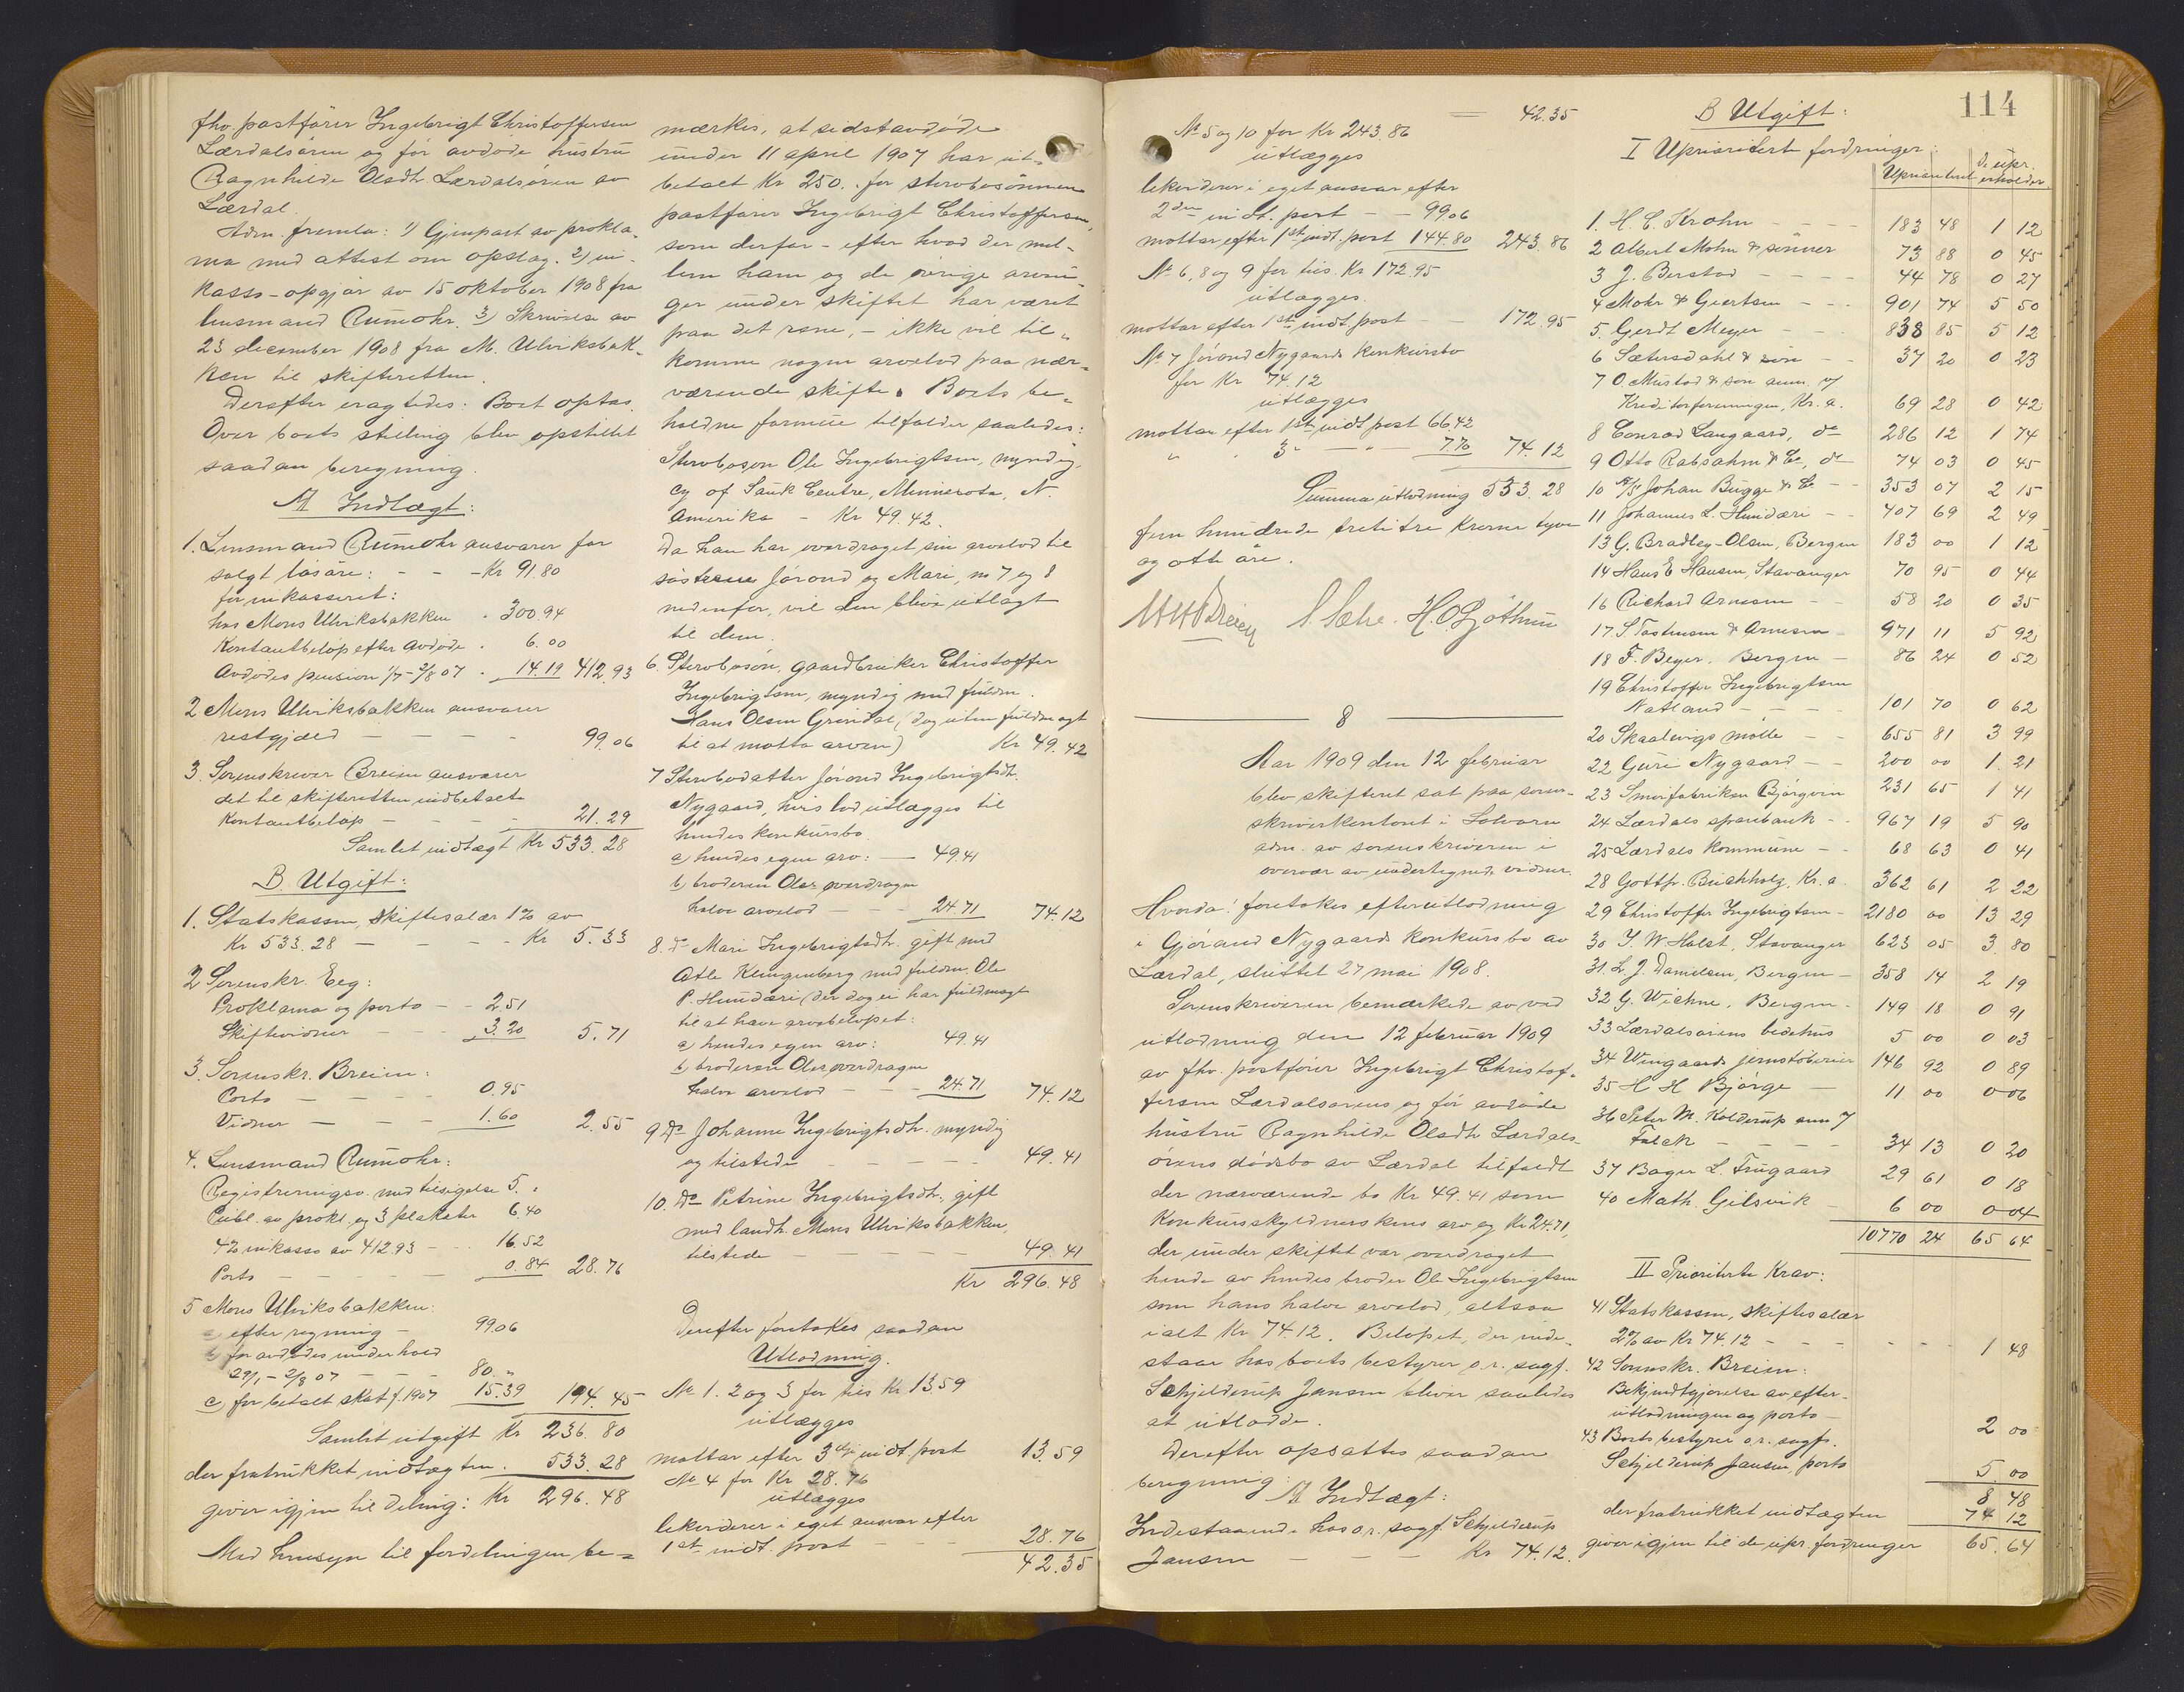 fhv. postfører Ingebrigt Christoffersen
Lærdalsøren og før avdøde hustru
Ragnhilde Olsdtr. Lærdalsøren av
Lærdal.
Adm. fremla: 1) Gjenpart av prokla-
ma med attest om opslag. 2) in-
kasso-opgjør av 15 oktober 1908 fra
lensmand Rumohr. 3) Skrivelse av
23 december 1908 fra M. Ulviksbak-
ken til skifteretten.
Derefter eragtedes: Boet optas.
Over boets stilling blev opstillet
saadan beregning.
A Indtægt:
1. Lensmand Rumohr ansvarer for
solgt løsøre: - - - Kr 91.80
for inkasseret:
hos Mons Ulviksbakken - 300.94
Kontantbeløp efter avdøde - 6.00
Avdødes pension 1/7-2/8 07 - 14.19 412.93
2 Mons Ulviksbakken ansvarer
restgjæld - - - - 99.06
3. Sorenskriver Breien ansvarer
det til skifteretten indbetalte
Kontantbeløp - - - - 21.29
Samlet indtægt Kr 533.28
B. Utgift:
1. Statskassen, skiftesalær 1% av
Kr 533.28 - - - - Kr 5.33
2 Sorenskr. Eeg:
Proklama og porto - - 2.51
Skiftevidner - - - 3.20 5.71
3. Sorenskr. Breien:
Porto - - - - 0.95
Vidner - - - 1.60 2.55
4. Lensmand Rumohr:
Registreringsv. med tilsigelse 5. "
Publ. av prokl. og 3 plakater 6.40
4% inkasso av 412.93 - - 16.52
Porto - - - - - 0.84 28.76
5 Mons Ulviksbakken:
a efter regning - 99.06
b for avdødes underhold
29/1 - 2/8 07 - - - 80. "
c, for betalt skat f. 1907 15.39 194.45
Samlet utgift Kr 236.80
der fratrukket indtægten. 533.28
giver igjen til deling: Kr 296.48
Med hensyn til fordelingen be-
mærkes, at sidstavdøde
under 11 april 1907 har ut-
betalt Kr 250. for stervbosønnen
postfører Ingebrigt Christoffersen,
som derfor - efter hvad der mel-
lem ham og de øvrige arvin-
ger under skiftet har været
paa det rene, - ikke vil til-
komme nogen arvelod paa nær-
værende skifte. Boets be-
holdne formue tilfalder saaledes:
Stervbosøn Ole Ingebrigtsen, myndig,
Cy of Sauk Centre, Minnesota, N.
Amerika - Kr 49.42.
Da han har overdraget sin arvelod til
søstrene Jørond og Mari, no 7 og 8
nedenfor, vil den blive utlagt
til dem.
6. Stervbosøn, gaardbruker Christoffer
Ingebrigtsen, myndig med fuldm.
Hans Olsen Grindal (dog uten fuldmagt
til at motta arven) Kr 49.42
7 Stervbodatter Jørond Ingebrigtsdtr.
Nygaard, hvis lod utlægges til
hendes konkursbo.
a) hendes egen arv: - 49.41
b) broderen Oles overdragen
halve arvelod - - - 24.71 74.12
8. do Mari Ingebrigtsdtr. gift med
Atle Klingenberg med fuldm. Ole
P. Hunderi (der dog ei har fuldmagt
til at have arvebeløpet:
a) hendes egen arv: 49.41
b) broderen Oles overdragen
halve arvelod - - - 24.71 74.12
9 Do Johanne Ingebrigtsdtr. myndig
og tilstede - - - - - 49.41
10. Do Petrine Ingebrigtsdtr. gift
med landh. Mons Ulviksbakken,
tilstede - - - - - 49.41
Kr 296.48
Derefter foretokes saadan
Utlodning.
No 1. 2 og 3 for tils. Kr 13.59
utlægges
mottar efter 3dje indt. post 13.59
No 4 for Kr 28.76
utlægges
likviderer i eget ansvar efter
1ste indt. post - - - 28.76
42.35
= 42.35
No 5 og 10 for Kr 243.86
utlægges
likviderer i eget ansvar efter
2den indt. post - - 99.06
mottar efter 1ste indt. post 144.80 243.86
No 6, 8 og 9 for tils. Kr 172.95
utlægges.
mottar efter 1ste indt. post - - 172.95
No 7 Jørond Nygaards konkursbo
for Kr 74.12
utlægges
mottar efter 1ste indt. post 66.42
" " 3. - " - 7.70 74.12
Summa utlodning 533.28
fem hundrede tretitre kroner tyve
og otte øre.
S. Sætre. H.O. Gjøthun
8
Aar 1909 den 12 februar
blev skifteret sat paa soren-
skriverkontoret i Solvorn
adm. av sorenskriveren i
overvær av undertegnede vidner.
Hvorda: foretokes efterutlodning
i Gjørand Nygaards konkursbo av
Lærdal, sluttet 27 mai 1908.
Sorenskriveren bemærkede av ved
utlodning den 12 februar 1909
av fhv. postfører Ingebrigt Christof-
fersen Lærdalsørens og før avdøde
hustru Ragnhilde Olsdtr. Lærdals-
ørens dødsbo av Lærdal tilfaldt
der nærværende bo Kr 49.41 som
Konkursskyldnerskens arv og Kr 24.71,
der under skiftet var overdraget
hende av hendes broder Ole Ingebrigtsen
som hans halve arvelod, altsaa
ialt Kr 74.12. Beløpet, der inde-
staar hos boets bestyrer o.r. sagf.
Schjelderup Jansen bliver saaledes
at utlodde.
Derefter opsattes saadan
beregning:
A Indtægt:
Indestaaende hos o.r. sagf. Schjelderup
Jansen - - - - Kr 74.12.
114
B Utgift:
I Uprioriterte fordringer:
Uprioritert De upr. erholder
1. H. C. Krohn - - - 183 48 1 12
2 Albert Mohn & sønner 73 88 0 45
3 J. Berstad - - - - 44 78 0 27
4 Mohr & Giertsen - - - 901 74 5 50
5. Gerdt Meyer - - - 838 85 5 12
6 Sætersdahl & søn - - 37 20 0 23
7 O. Mustad & søn anm. v/
Kreditorforeningen, Kr.a. 69 28 0 42
8 Conrad Langaard, do 286 12 1 74
9 Otto Robsahm & Co, do 74 03 0 45
10 A/S Johan Bugge & Co - - 353 07 2 15
11 Johannes L. Hunderi - - 407 69 2 49
13 G. Bradley-Olsen, Bergen 183 00 1 12
14 Hans E Hansen, Stavanger 70 95 0 44
16 Richard Arnesen - 58 20 0 35
17. S. Tastensen & Arnesen - 971 11 5 92
18 F. Beyer. Bergen - 86 24 0 52
19 Christoffer Ingebrigtsen
Natland - - - - 101 70 0 62
20 Skaalevigs mølle - - 655 81 3 99
22 Guri Nygaard - - 200 00 1. 21
23 Smørfabriken Bjørgvin 231 65 1 41
24 Lærdals sparebank - - 967 19 5 90
25 Lærdals kommune - - 68 63 0 41
28 Gottfr. Buchholz, Kr.a. 362 61 2 22
29 Christoffer Ingebrigtsen - 2180 00 13 29
30 I. W. Holst, Stavanger 623 05 3 80
31. L. J. Danielsen, Bergen - 358 14 2 19
32 G. Wiehne, Bergen - 149 18 0 91
33 Lærdalsørens bedehus 5 00 0 03
34 Wingaards jernstøberier 146 92 0 89
35 H H Bjørge - 11 00 0 06
36 Peter M. Kolderup anm 7
Falck - - - - 34 13 0 20
37 Bager L. Frugaard 29 61 0 18
40 Math. Gilsvik - 6 00 0 04
10770 24 65 64
II Prioriterte krav:
41 Statskassen, skiftesalær
2% av Kr 74.12 - - - - - - 1 48
42 Sorenskr. Breien:
Bekjendtgjørelse av efter-
utlodningen og porto - 2 00
43 Boets bestyrer o.r. sagf.
Schjelderup Jansen, porto 5. 00
8 48
der fratrukket indtægten 74 12
giver igjen til de upr. fordringer 65.64